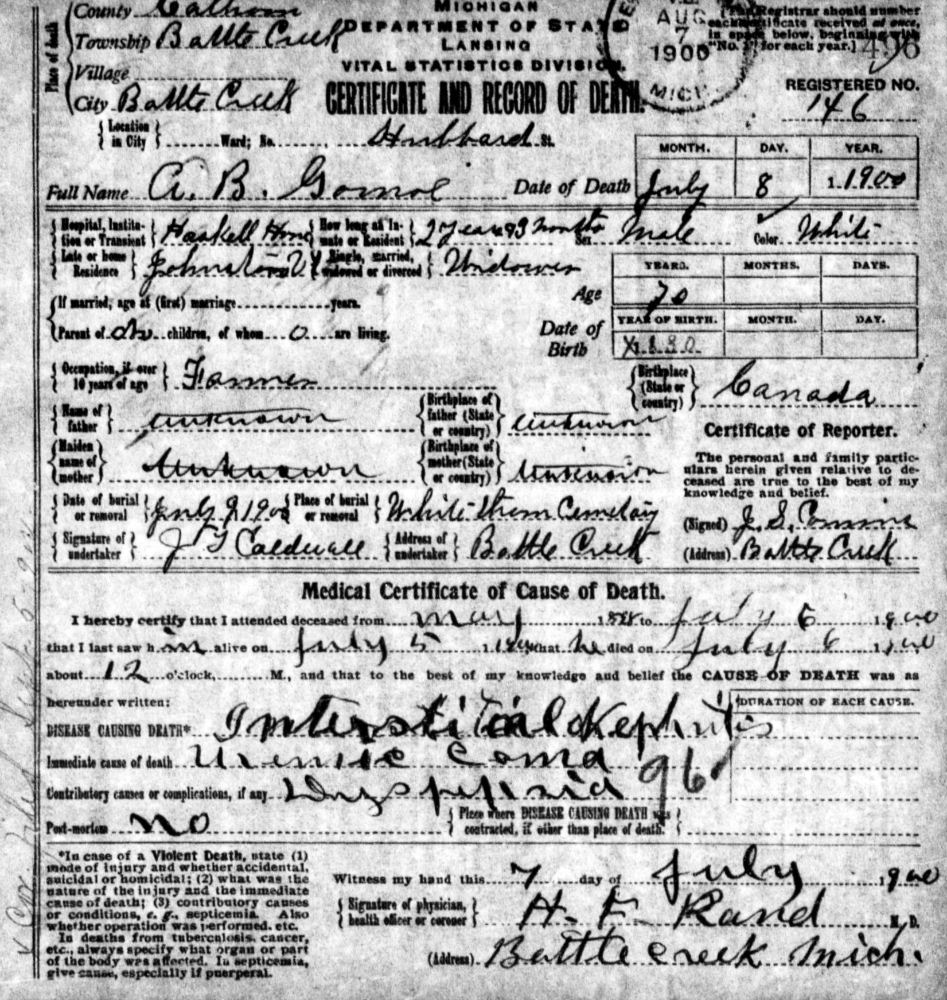 Place of death
County Calhoun
Township Battle Creek
Village
City Battle Creek
MICHIGAN
DEPARTMENT OF STATE
LANSING
VITAL STATISTICS DIVISION.
CERTIFICATE AND RECORD OF DEATH.
AUG
7
1900
MICH.
[The Registrar should number
each certificate received at once,
in space below, beginning with
"No. 1" for each year.] 496
REGISTERED NO.
146
Location in City Ward; No. Hubbard St.
Full Name A. B. Date of Death
MONTH. DAY. YEAR.
July 8 1900
Hospital, Institution or Transient Haskell Home How long at Inmate or Resident 2 years 3 months Sex Male Color White
Late or home Residence Single, married, widowed or divorced Widower
Age
YEARS. MONTHS. DAYS.
70
(If married, age at (first) marriage years.
Parent of children, of whom 0 are living.
Date of Birth
YEAR OF BIRTH. MONTH. DAY.
Occupation, if over 10 years of age Farmer
Birthplace (State or country) Canada
Name of father Unknown Birthplace of father (State or country) Unknown
Maiden name of mother Unknown Birthplace of mother (State or country) Unknown
Certificate of Reporter.
The personal and family partic-
ulars herein given relative to de-
ceased are true to the best of my
knowledge and belief.
(Signed) J. S.
(Address) Battle Creek
Date of burial or removal July 9 1900 Place of burial or removal Cemetery
Signature of undertaker Caldwell Address of undertaker Battle Creek
Medical Certificate of Cause of Death.
I hereby certify that I attended deceased from May to July 6 1900
that I last saw him alive on July 5 that he died on July 6
about 12 o'clock, M., and that to the best of my knowledge and belief the CAUSE OF DEATH was as
hereunder written:
DURATION OF EACH CAUSE.
DISEASE CAUSING DEATH* Interstitial Nephritis
Immediate cause of death Uremic Coma 96
Contributory causes or complications, if any Dyspepsia
Post-mortem no Place where DISEASE CAUSING DEATH was contracted, if other than place of death.
*In case of a Violent Death, state (1)
mode of injury and whether accidental,
suicidal or homicidal; (2) what was the
nature of the injury and the immediate
cause of death; (3) contributory causes
or conditions, e. g., septicemia. Also
whether operation was performed, etc.
In deaths from tuberculosis, cancer,
etc., always specify what organ or part
of the body was affected. In septicemia,
give cause, especially if puerperal.
Witness my hand this 7 day of July, 1900
Signature of physician, health officer or coroner H. F. Rand M. D.
(Address) Battle Creek Mich.